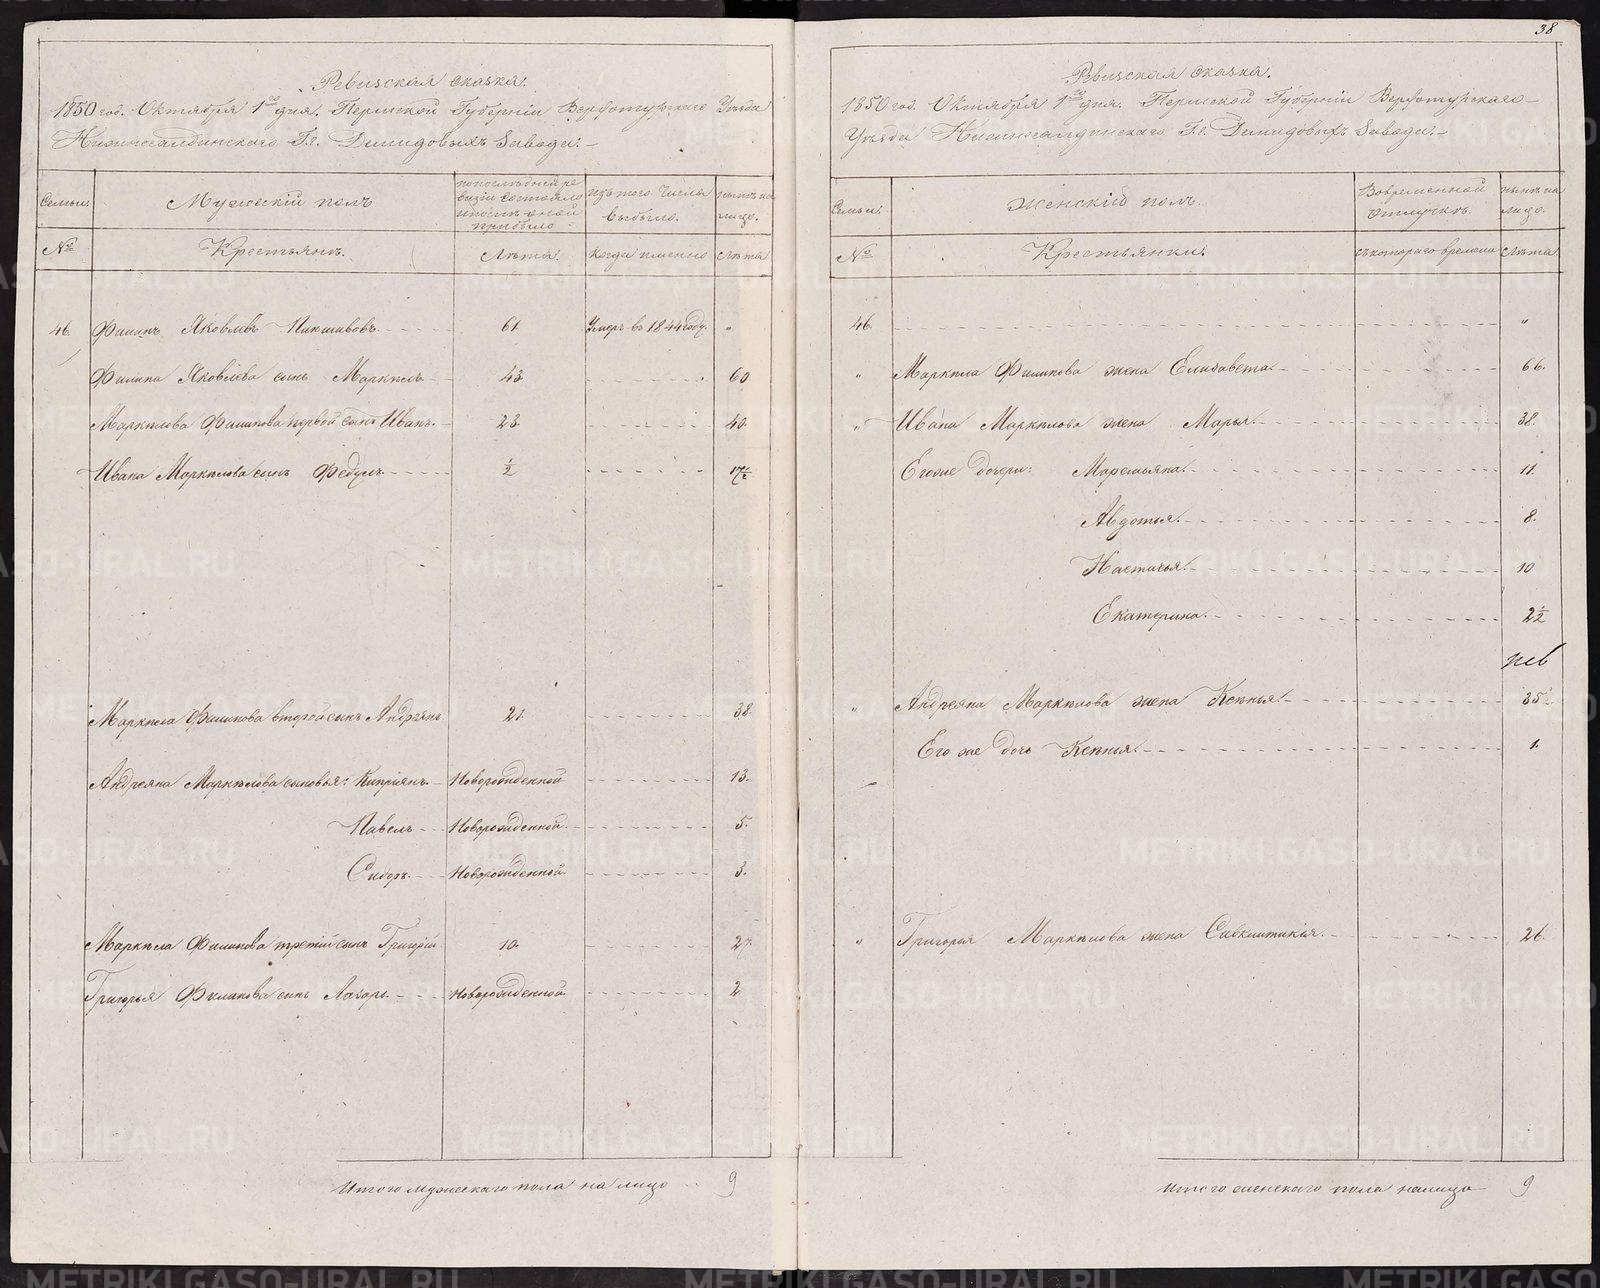 38
Ревизская сказка.
1850 год. Октября 1го дня. Пермской Губерніи Верхотурскаго Уѣзда
Нижнесалдинскаго Гг. Демидовыхъ Завода.
Семьи. Мужескій полъ по последней ревизіи состояло и после оной прибыло изъ того числа выбыло. нынѣ на лицо.
№ Крестьянъ. Лѣта. когда именно Лѣта
46. Филипъ Яковлевъ 61 Умеръ въ 1844 году. "
Филипа Яковлева сынъ Маркелъ 43 60
Маркелова Филипова первой сынъ Иванъ. 23 40
Ивана Маркелова сынъ Федулъ ½ 17½
Маркела Филипова второй сынъ Андреянъ. 21. 38.
Андреяна Маркелова сыновья: Кипріянъ. Новорожденной 13.
Павелъ Новорожденной. 5.
Сидоръ. Новорожденной. 3.
Маркела Филипова третій сынъ Григорій 10. 27.
Григорья Филипова сынъ Лазарь. Новорожденной 2
Итого мужескаго пола на лицо 9
Ревизская сказка.
1850 год. Октября 1го дня. Пермской Губерніи Верхотурскаго
Уѣзда Нижнесалдинскаго Гг. Демидовыхъ Завода.
Семьи. Женскій полъ. Во временной отлучкѣ. нынѣ на лицо.
№ Крестьянки. съ котораго времени Лѣта.
46. "
" Маркела Филипова жена Елизавета. 66.
" Ивана Маркелова жена Марья. 38.
Его же дочери: Маремьяна. 11.
Авдотья. 8.
Настасья. 10
Екатерина. 2½
" Андреяна Маркелова жена Ксенья. 35
Его же дочь Ксенья. 1.
" Григорья Маркелова жена 26.
Итого женскаго пола налицо 9
METRIKI.GASO-URAL.RU